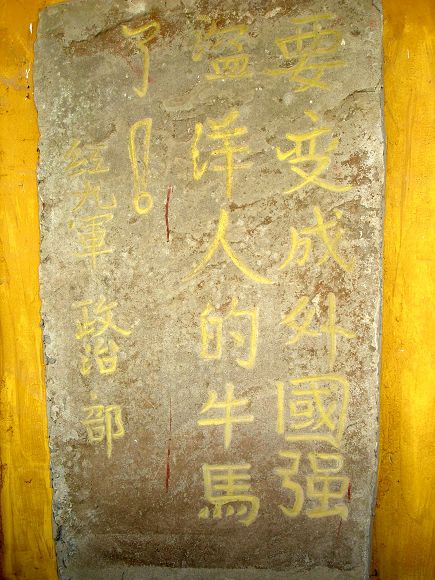 要变成外國强
盗洋人的牛馬
了！
红九軍政治部